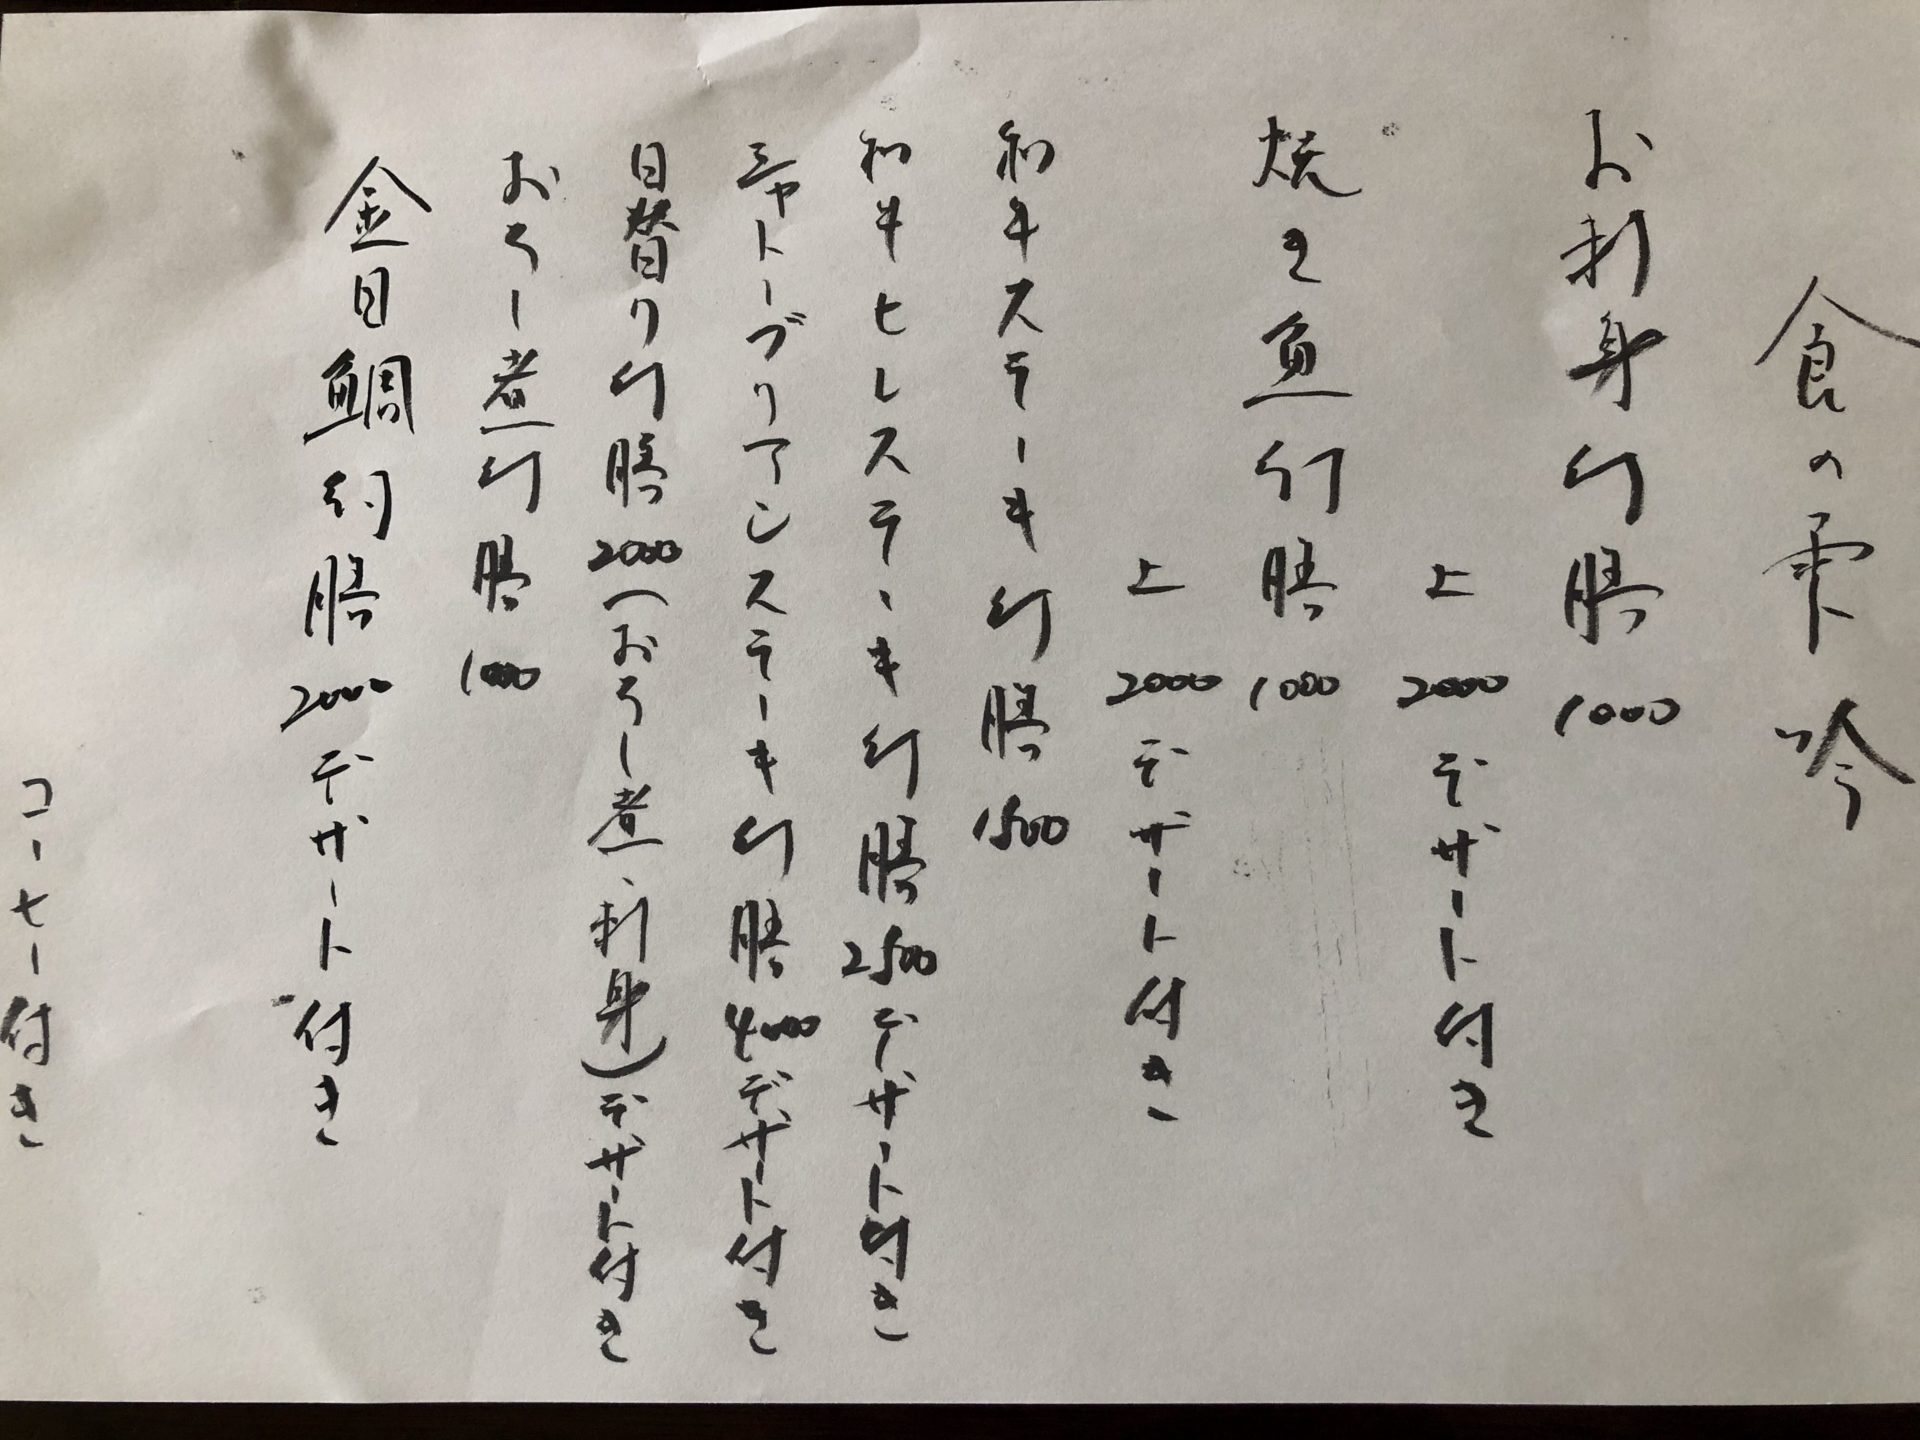 食の雫 吟
お刺身御膳 1000
上 2000 デザート付き
焼き魚御膳 1000
上 2000 デザート付き
和牛ステーキ御膳 1500
和牛ヒレステーキ御膳 2500 デザート付き
シャトーブリアンステーキ御膳 4000 デザート付き
日替り御膳 2000 (おろし煮、刺身) デザート付き
おろし煮御膳 1000
金目鯛御膳 2000 デザート付き
コーヒー付き